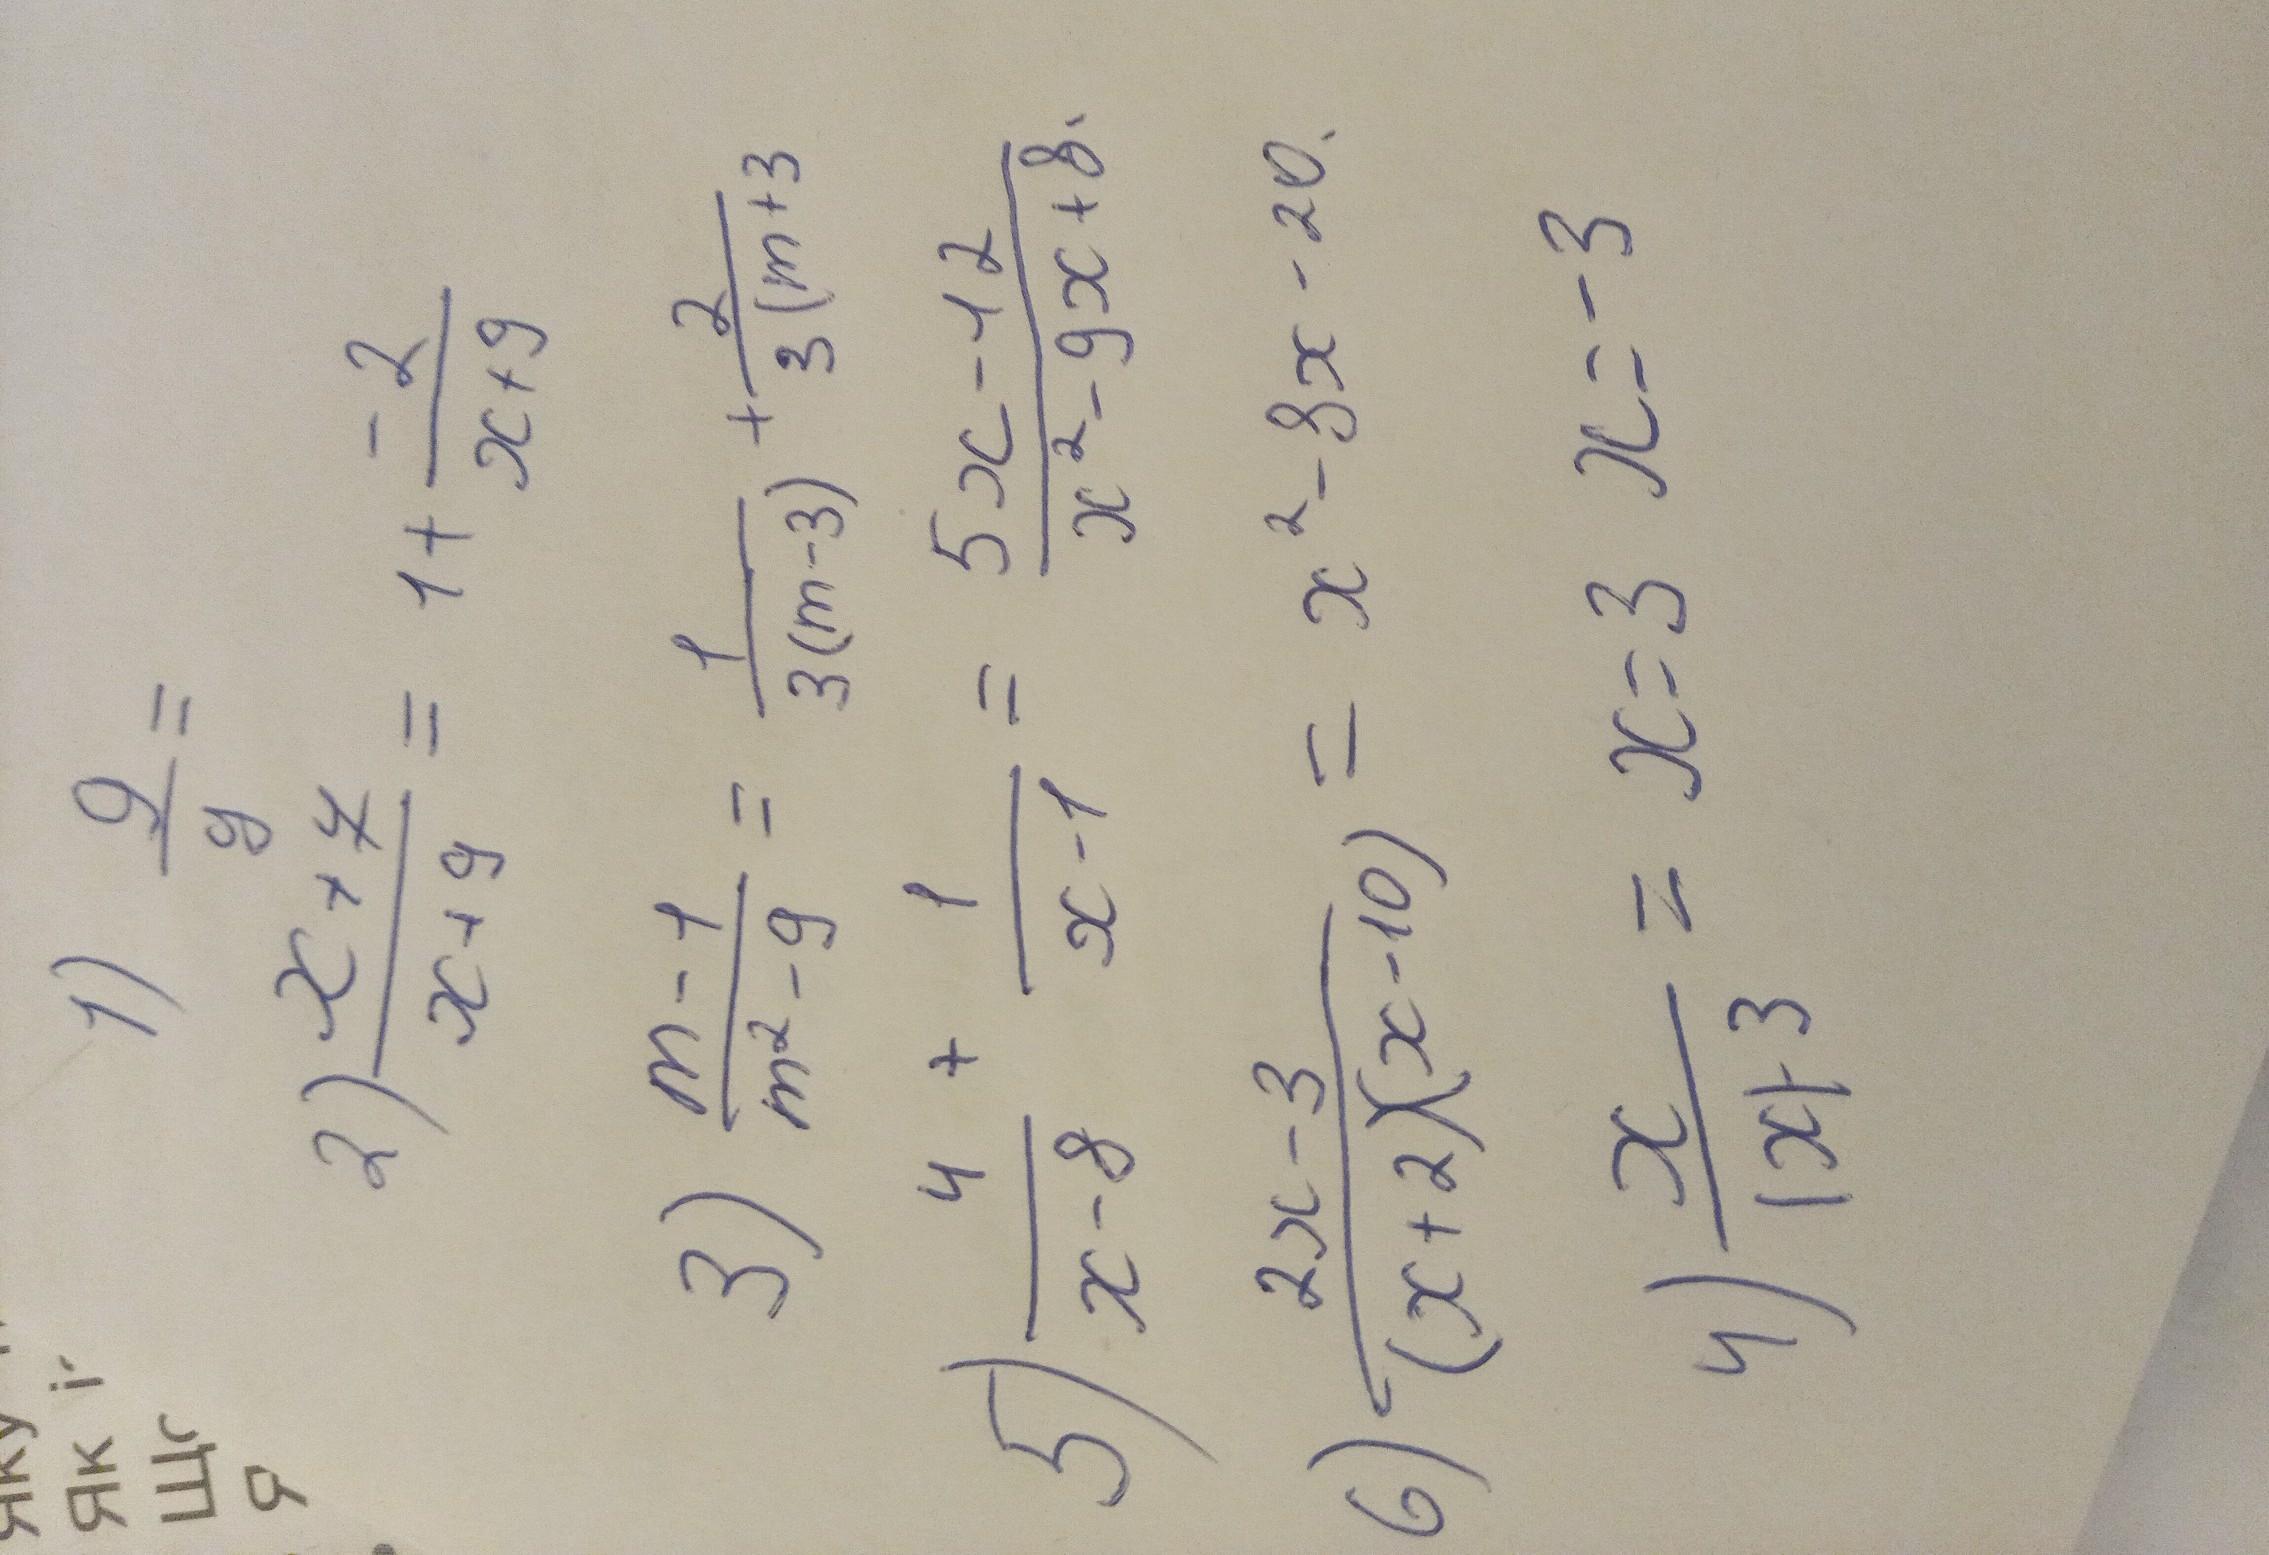 яку
як і
що
я
1) 9/y =
2) (x+7)/(x+9) = 1 + (-2)/(x+9)
3) (m-1)/(m²-9) = 1/(3(m-3)) + 2/(3(m+3
5) 4/(x-8) + 1/(x-1) = (5x-12)/(x²-9x+8).
6) (2x-3)/((x+2)(x-10)) = x²-8x-20.
4) x/(|x|-3) = x=3 x=-3